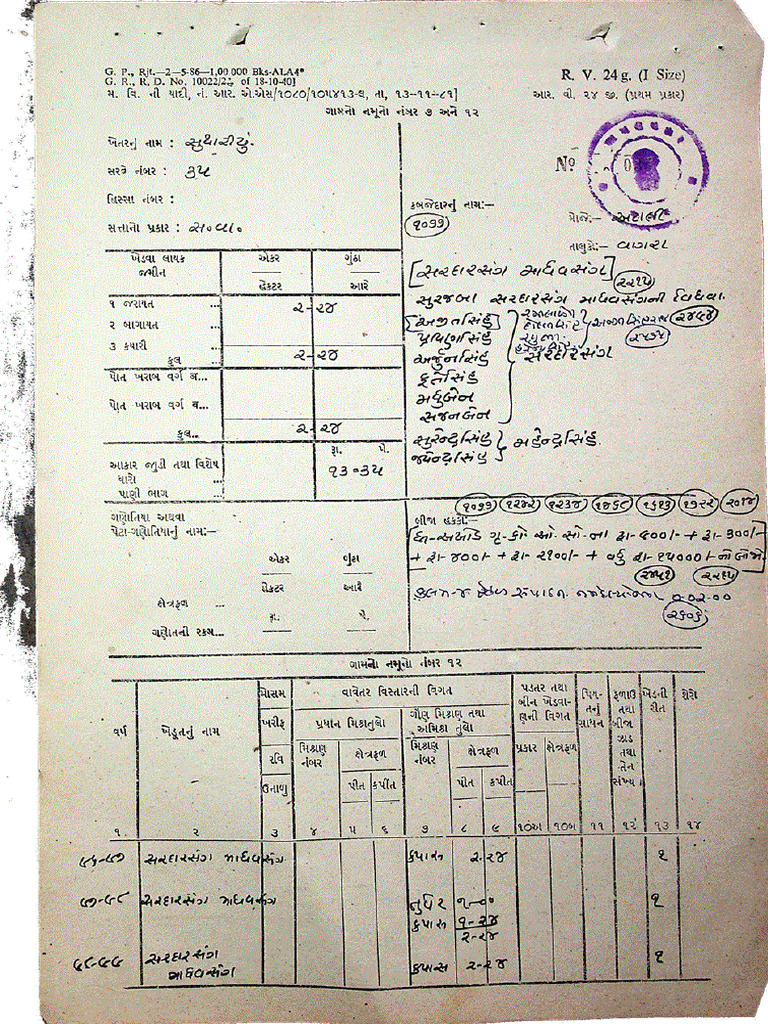 G. P., Rjt.—2—5-86—1,00,000 Bks-ALA4*
G. R., R. D. No. 10022/2 of 18-10-40]
મ. વિ. ની યાદી, નં. આર. એ.એસ/૧૦૮૦/૧૦૫૪૧૩-લ, તા, ૧૩-૧૧-૮૧]
R. V. 24 g. (I Size)
આર. વી. ૨૪ જી. (પ્રથમ પ્રકાર)
ગામનો નમૂનો નંબર ૭ અને ૧૨
ખેતરનું નામ : સુથારીયું.
સરવે નંબર : ૩૫
હિસ્સા નંબર :
સત્તાનો પ્રકાર : સ.વા.
Nº
કબજેદારનું નામ:—
૧૦૭૭
મોજે:—
તાલુકો:— વાગરા
ખેડવા લાયક જમીન
એકર
ગુંઠા
હેક્ટર
આરે
૧ જરાયત ... ૨-૨૪
૨ બાગાયત ...
૩ કયારી ...
કુલ ... ૨-૨૪
પોત ખરાબ વર્ગ અ...
પોત ખરાબ વર્ગ બ...
કુલ... ૨-૨૪
રૂા. પૈ.
આકાર જુડી તથા વિશેષ ધારો ... ૧૩=૩૫
પાણી ભાગ ...
[સરદારસંગ માધવસંગ] ૨૨૧૫
સુરજબા સરદારસંગ માધવસંગની વિધવા.
[અજીતસિંહ]
પ્રવિણસિંહ
અર્જુનસિંહ
ફતેસિંહ
મધુબેન
સજનબેન
સરદારસંગ
સુરેન્દ્રસિંહ
જયેન્દ્રસિંહ
મહેન્દ્રસિંહ.
ગણોતિયા અથવા
પેટા-ગણોતિયાનું નામ:—
એકર ગુંઠા
હેક્ટર આરે
ક્ષેત્રફળ ...
રૂા. પૈ.
ગણોતની રકમ...
બીજા હક્કો:—
રૂા-૫૦૦/- + રૂા-૩૦૦/-
+ રૂા-૪૦૦/- + રૂા-૨૧૦૦/- + વધુ રૂા-૧૫૦૦૦/- નો બોજો
૦-૦૨-૦૦
ગામનો નમૂનો નંબર ૧૨
વર્ષ
ખેડૂતનું નામ
મોસમ
ખરીફ
રવિ
ઉનાળુ
વાવેતર વિસ્તારની વિગત
પ્રધાન મિશ્રતુલો
ગૌણ મિશ્રણ તથા અમિશ્ર તુલો
મિશ્રણ નંબર
ક્ષેત્રફળ
પીત કપીત
મિશ્રણ નંબર
ક્ષેત્રફળ
પીત કપીત
પડતર તથા બીન ખેડવાણની વિગત
પ્રકાર ક્ષેત્રફળ
પિયતનું સાધન
ફળાઉ તથા બીજા ઝાડ તથા તેન સંખ્યા
ખેડની રીત
શેરો
૧ ૨ ૩ ૪ ૫ ૬ ૭ ૮ ૯ ૧૦અ ૧૦બ ૧૧ ૧૨ ૧૩ ૧૪
૯૬-૯૭ સરદારસંગ માધવસંગ કપાસ ૨-૨૪ ૧
૯૭-૯૮ સરદારસંગ માધવસંગ તુવેર ૧-૦૦ ૧
કપાસ ૧-૨૪
૨-૨૪
૯૮-૯૯ સરદારસંગ માધવસંગ કપાસ ૨-૨૪ ૧